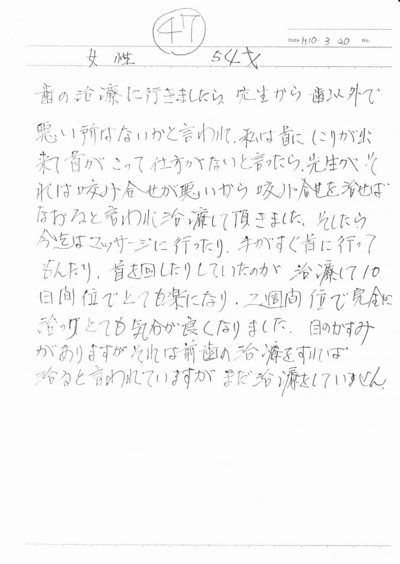 47
Date H10・3・20 No.
女性 54才
歯の治療に行きましたら、先生から歯以外で
悪い所はないかと言われて、私は首にしこりが出
来て首がこって仕方がないと言ったら、先生が、そ
れは咬み合せが悪いから咬み合せを治せば
なおると言われ治療して頂きました。そしたら
今迄はマッサージに行ったり、手がすぐ首に行って
もんだり、首を回したりしていたのが治療して10
日間位でとても楽になり、2週間位で完全に
治ってとても気分が良くなりました。目のかすみ
がありますがそれは前歯の治療をすれば
治ると言われていますがまだ治療をしていません。